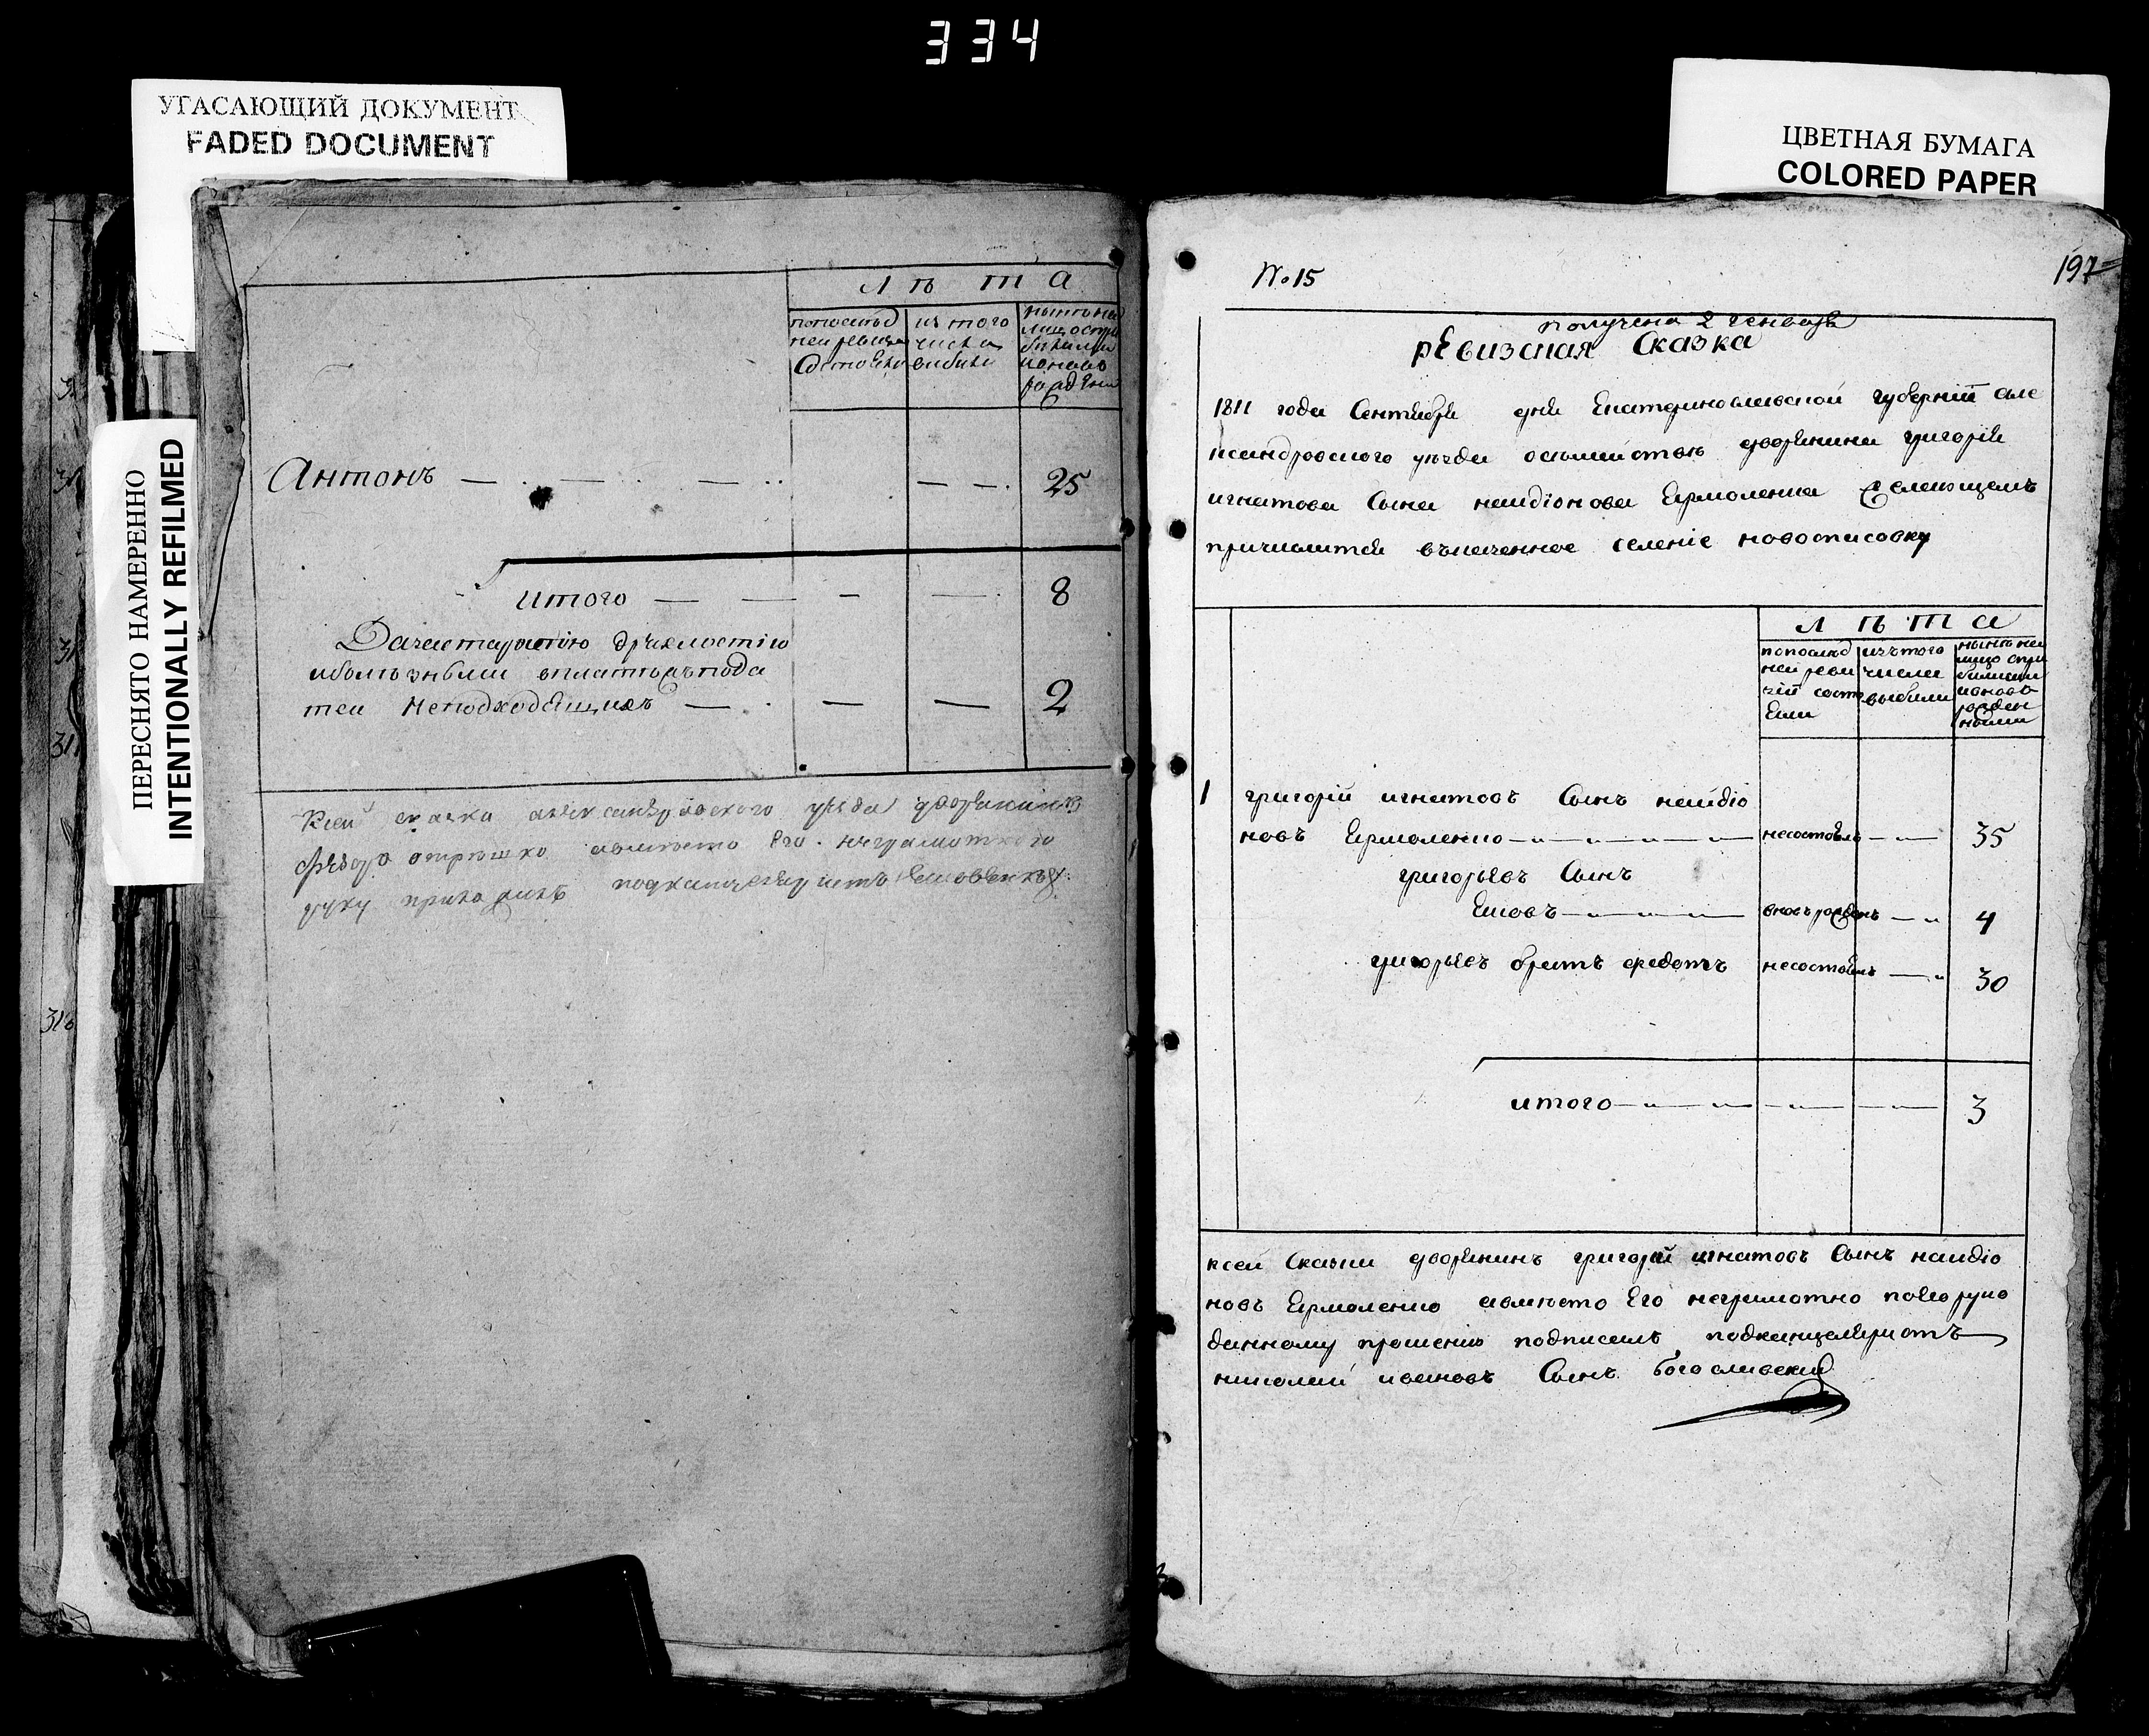 334
УГАСАЮЩИЙ ДОКУМЕНТ
FADED DOCUMENT
ЦВЕТНАЯ БУМАГА
COLORED PAPER
ПЕРЕСНЯТО НАМЕРЕННО
INTENTIONALLY REFILMED
Лѣта
попослѣд
ней ревизи
состояли
из того
числа
выбыли
нынѣ на
лицо с при
былыми
и вновь
Антонъ 25
итого 8
дряхлостію
тей неподходящихъ 2
Ксей сказка александровского уезда дворянинъ
а вместо его неграмотного
руку приложилъ
№ 15
197
получена 2 генваря
ревизская Сказка
1811 года Сентября дня Екатеринославской губерніи але
ксандровского уѣзда дворянина григорія
игнатова Сына Ермоленка желающемъ
причислится въ селеніе новоспасовку
Лѣта
попослѣд
ней реви
зіи состо
яли
изътого
числа
выбыли
нынѣ на
лицо с при
былыми
и вновь
рожден
ными
1 григорій игнатовъ Сынъ наидіо
новъ Ермоленко несостоялъ 35
григорьевъ Сынъ
вновь рожденъ 4
григорьевъ братъ федотъ несостоялъ 30
итого 3
ксей Скаски дворянинъ григорій игнатовъ Сынъ наидіо
новъ Ермоленко авместо Его неграмотно поего руко
данному прошенію подписалъ подканцеляристъ
николай ивановъ Сынъ богославский